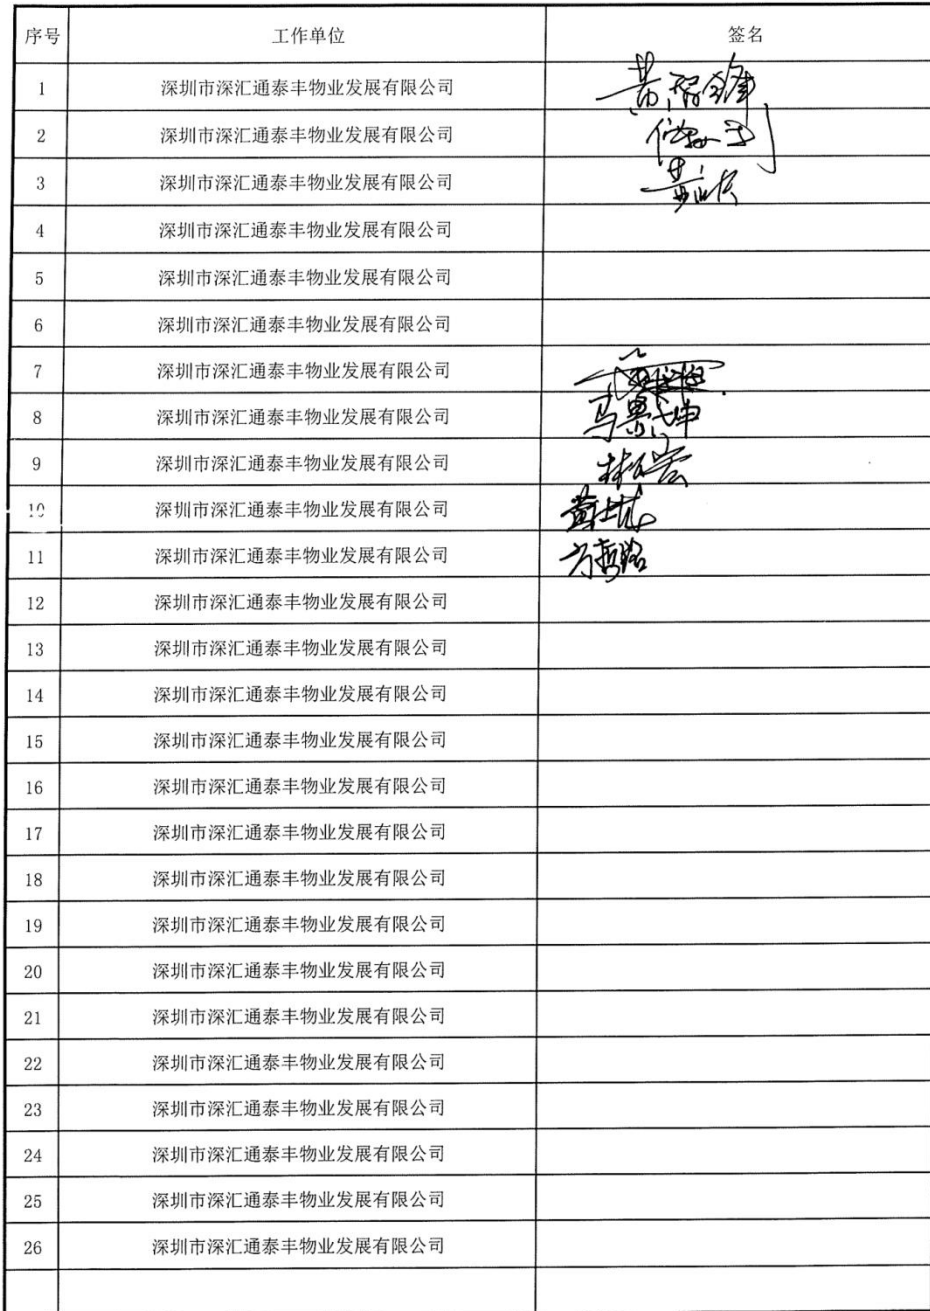 序号 工作单位 签名
1 深圳市深汇通泰丰物业发展有限公司
2 深圳市深汇通泰丰物业发展有限公司
3 深圳市深汇通泰丰物业发展有限公司
4 深圳市深汇通泰丰物业发展有限公司
5 深圳市深汇通泰丰物业发展有限公司
6 深圳市深汇通泰丰物业发展有限公司
7 深圳市深汇通泰丰物业发展有限公司
8 深圳市深汇通泰丰物业发展有限公司
9 深圳市深汇通泰丰物业发展有限公司
10 深圳市深汇通泰丰物业发展有限公司
11 深圳市深汇通泰丰物业发展有限公司
12 深圳市深汇通泰丰物业发展有限公司
13 深圳市深汇通泰丰物业发展有限公司
14 深圳市深汇通泰丰物业发展有限公司
15 深圳市深汇通泰丰物业发展有限公司
16 深圳市深汇通泰丰物业发展有限公司
17 深圳市深汇通泰丰物业发展有限公司
18 深圳市深汇通泰丰物业发展有限公司
19 深圳市深汇通泰丰物业发展有限公司
20 深圳市深汇通泰丰物业发展有限公司
21 深圳市深汇通泰丰物业发展有限公司
22 深圳市深汇通泰丰物业发展有限公司
23 深圳市深汇通泰丰物业发展有限公司
24 深圳市深汇通泰丰物业发展有限公司
25 深圳市深汇通泰丰物业发展有限公司
26 深圳市深汇通泰丰物业发展有限公司